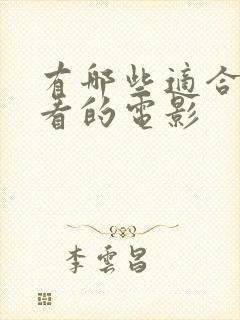 有哪些適合
者的電影
李雲昌